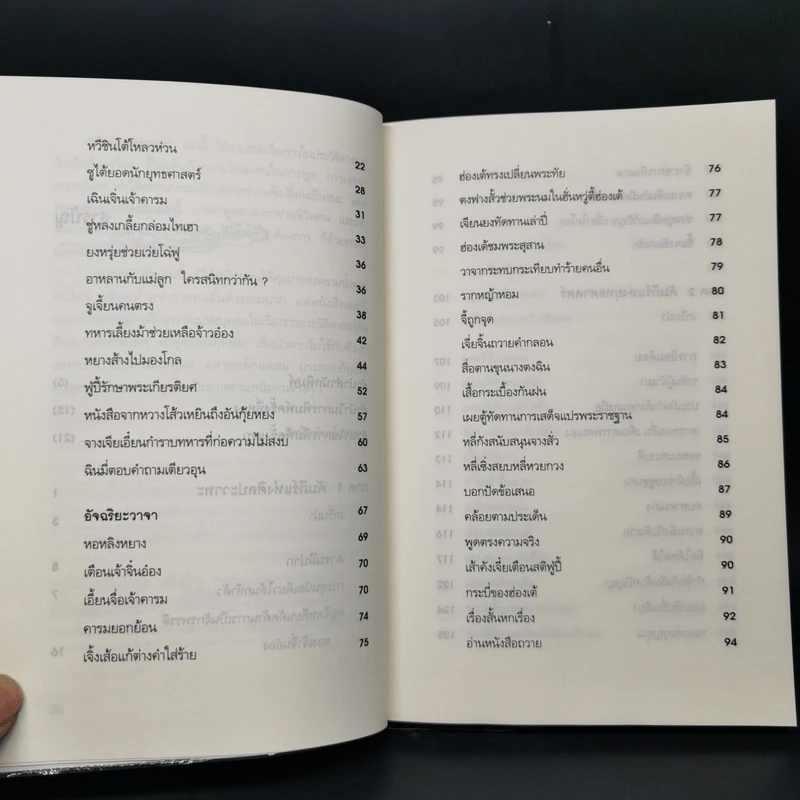 หวีซินโต้โหลวห่วน 22
ซูไต้ยอดนักยุทธศาสตร์ 28
เฉินเจิ่นเจ้าคารม 31
ชู่หลงเกลี้ยกล่อมไทเฮา 33
ยงหรุ่ยช่วยเว่ยโฉ่ฟู 36
อาหลานกับแม่ลูก ใครสนิทกว่ากัน ? 36
จูเจี้ยนคนตรง 38
ทหารเลี้ยงม้าช่วยเหลือจ้าวอ๋อง 42
หยางส้างไปมองโกล 44
ฟู่ปี้รักษาพระเกียรติยศ 52
หนังสือจากหวางโส้วเหยินถึงอันกุ้ยหยง 57
จางเจียเอี๋ยนกำราบทหารที่ก่อความไม่สงบ 60
ฉินมี่ตอบคำถามเตียวอุน 63
อัจฉริยะวาจา 67
หอหลิงหยาง 69
เตือนเจ้าจิ่นอ๋อง 70
เอี้ยนจื่อเจ้าคารม 70
คารมยอกย้อน 74
เจิ้งเส้อแก้ต่างคำใส่ร้าย 75
ฮ่องเต้ทรงเปลี่ยนพระทัย 76
ตงฟางสั้วช่วยพระนมในฮั่นหวู่ตี้ฮ่องเต้ 77
เจียนยงทัดทานเล่าปี่ 77
ฮ่องเต้ชมพระสุสาน 78
วาจากระทบกระเทียบทำร้ายคนอื่น 79
รากหญ้าหอม 80
จี้ถูกจุด 81
เจี่ยจิ้นถวายคำกลอน 82
สื่อตานขุนนางตงฉิน 83
เสื้อกระเบื้องกันฝน 84
เผยตู้ทัดทานการเสด็จแปรพระราชฐาน 84
หลี่กังสนับสนุนจางสั่ว 85
หลี่เซิ่งสยบหลี่หวยกวง 86
บอกปัดข้อเสนอ 87
คล้อยตามประเด็น 89
พูดตรงความจริง 90
เส้าคังเจี๋ยเตือนสติฟู่ปี้ 90
กระบี่ของฮ่องเต้ 91
เรื่องสั้นหกเรื่อง 92
อ่านหนังสือถวาย 94